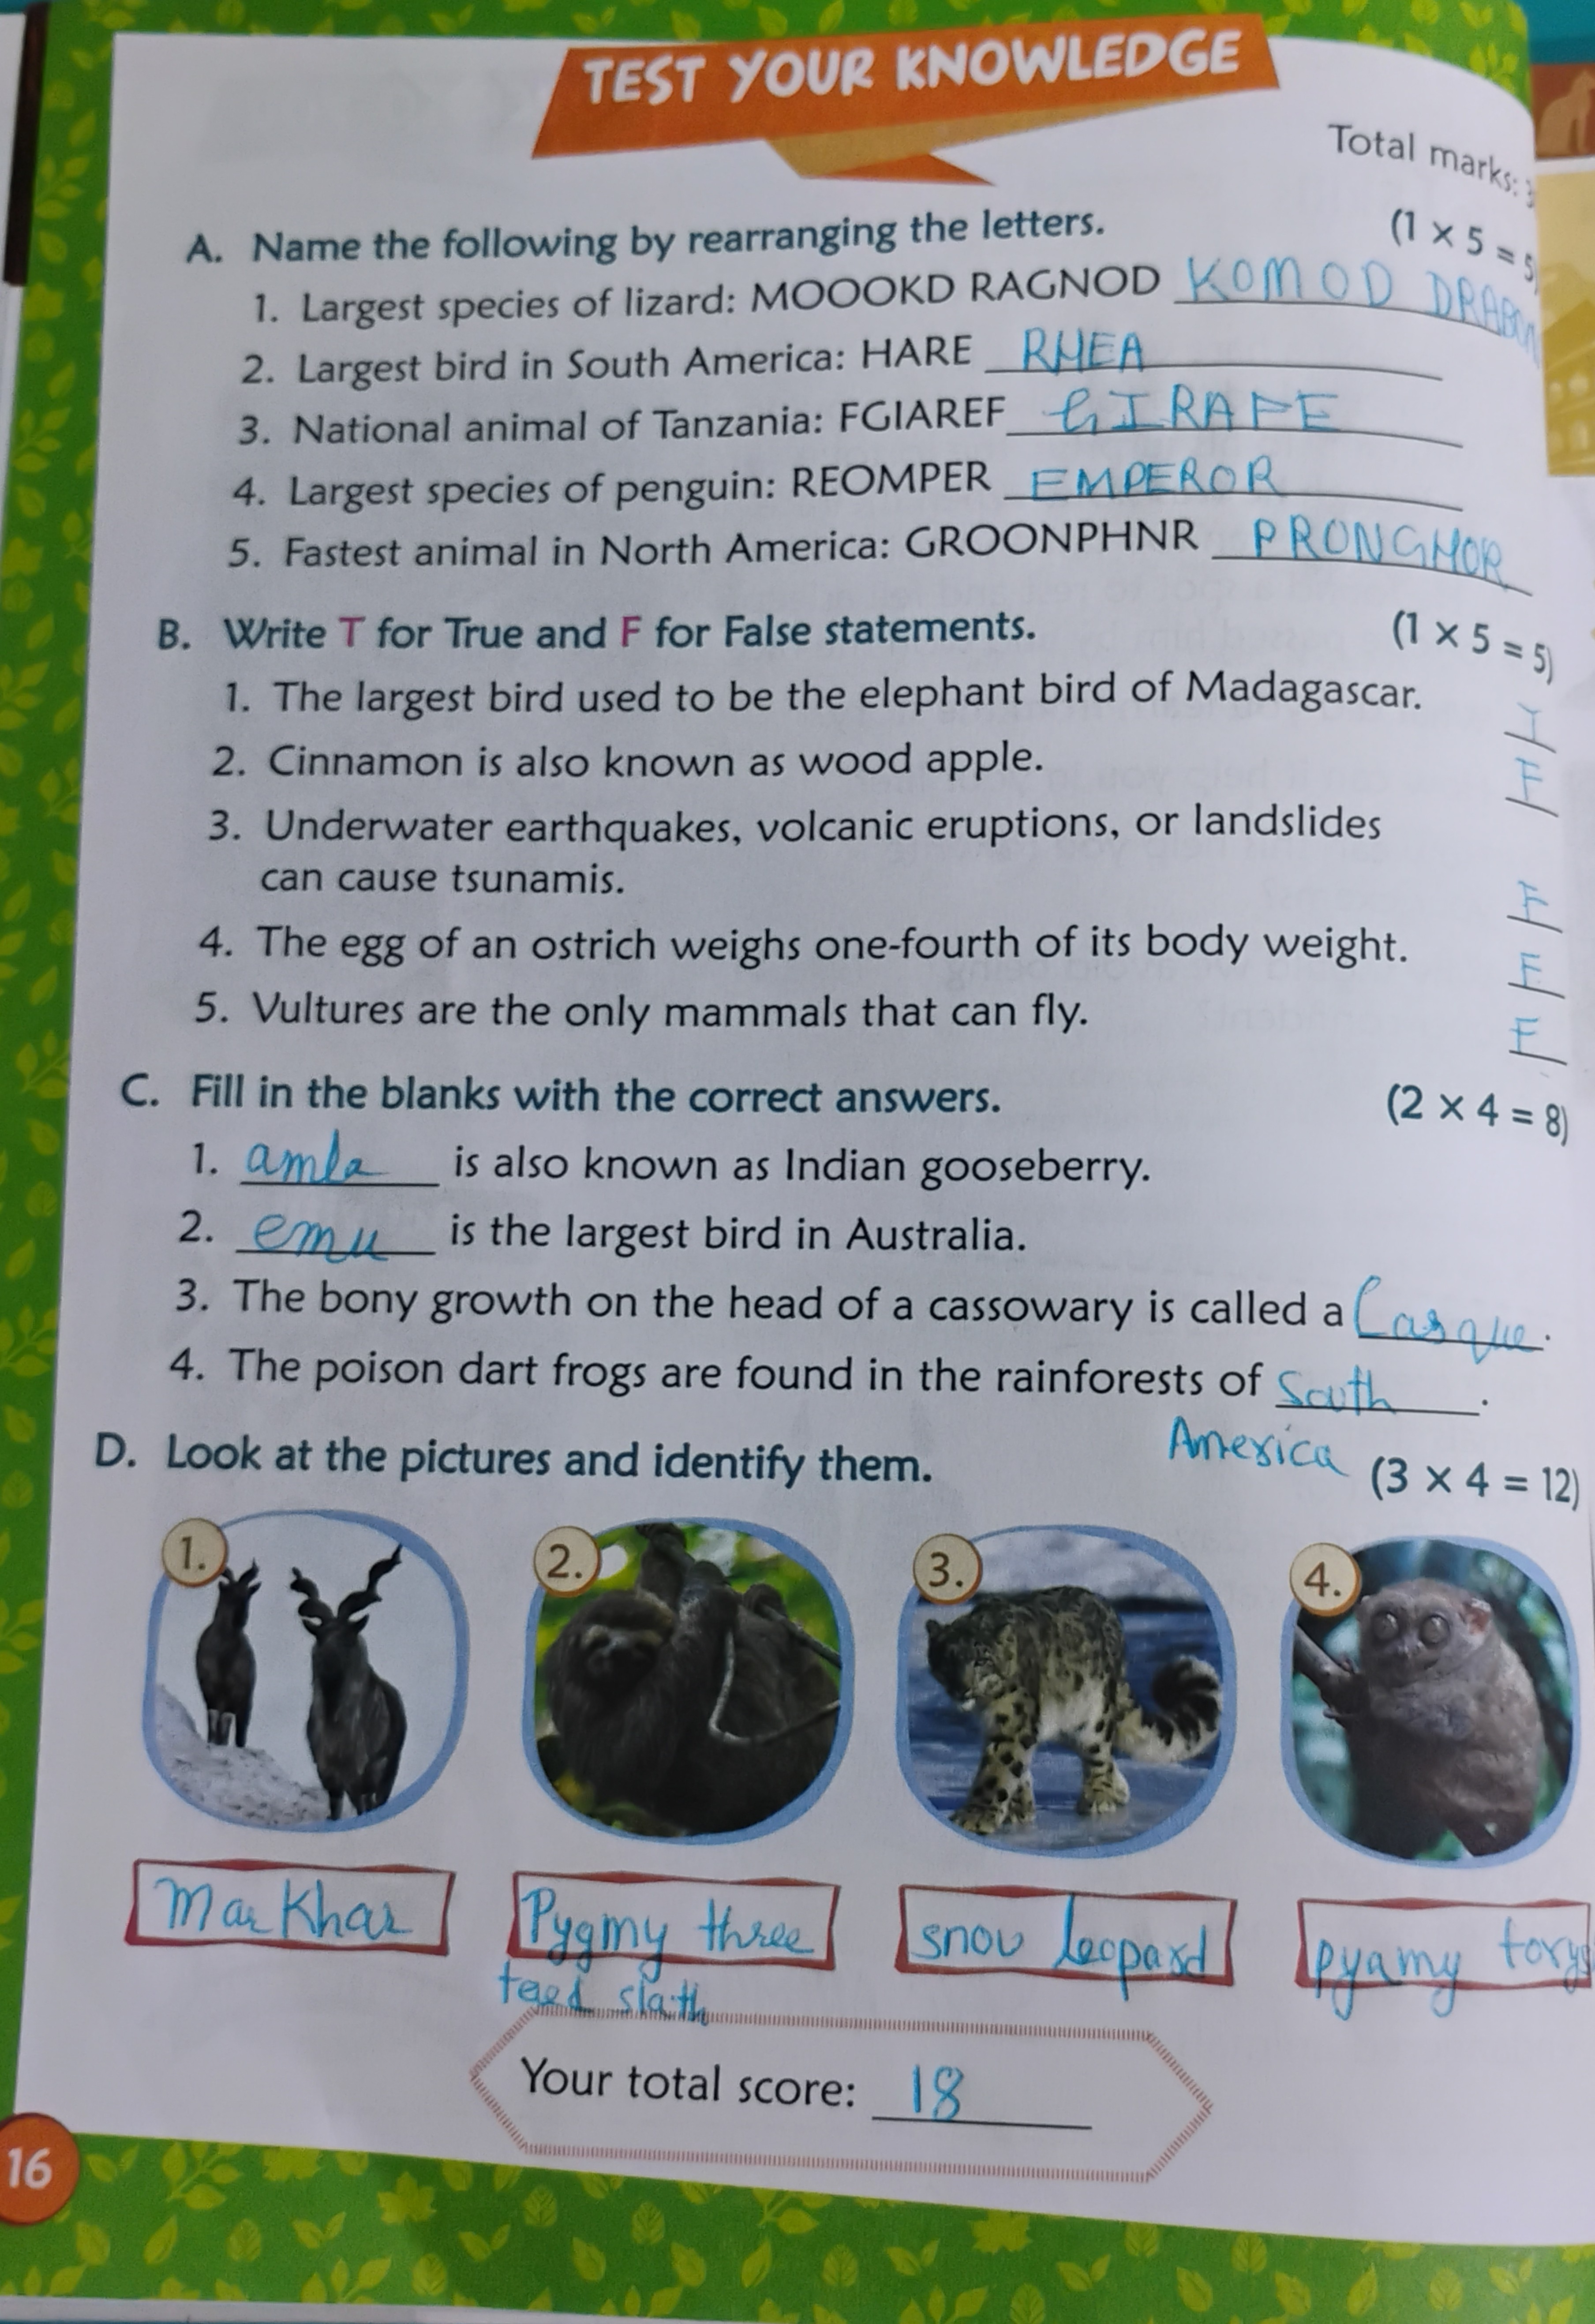 TEST YOUR KNOWLEDGE
Total marks:
A. Name the following by rearranging the letters. (1 × 5 = 5)
1. Largest species of lizard: MOOOKD RAGNOD KOMOD DRAGON
2. Largest bird in South America: HARE RHEA
3. National animal of Tanzania: FGIAREF GIRAFE
4. Largest species of penguin: REOMPER EMPEROR
5. Fastest animal in North America: GROONPHNR PRONGHOR
B. Write T for True and F for False statements. (1 × 5 = 5)
1. The largest bird used to be the elephant bird of Madagascar. T
2. Cinnamon is also known as wood apple. F
3. Underwater earthquakes, volcanic eruptions, or landslides
can cause tsunamis. F
4. The egg of an ostrich weighs one-fourth of its body weight. F
5. Vultures are the only mammals that can fly. F
C. Fill in the blanks with the correct answers. (2 × 4 = 8)
1. amla is also known as Indian gooseberry.
2. emu is the largest bird in Australia.
3. The bony growth on the head of a cassowary is called a Casque.
4. The poison dart frogs are found in the rainforests of South.
America
D. Look at the pictures and identify them. (3 × 4 = 12)
1. 2. 3. 4.
Markhar Pygmy three snow leopard pyamy
slath
Your total score: 18
16